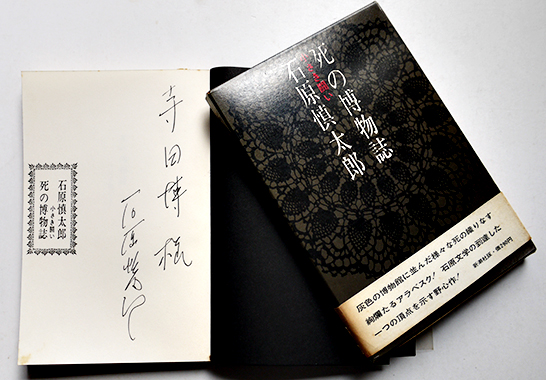 寺田博様
石原慎太郎
石原慎太郎
死の博物誌
小さき闘い
死の博物誌
小さき闘い
石原慎太郎
灰色の博物館に並んだ様々な死の織りなす
絢爛たるアラベスク! 石原文学の到達した
一つの頂点を示す野心作!
新潮社版・価290円